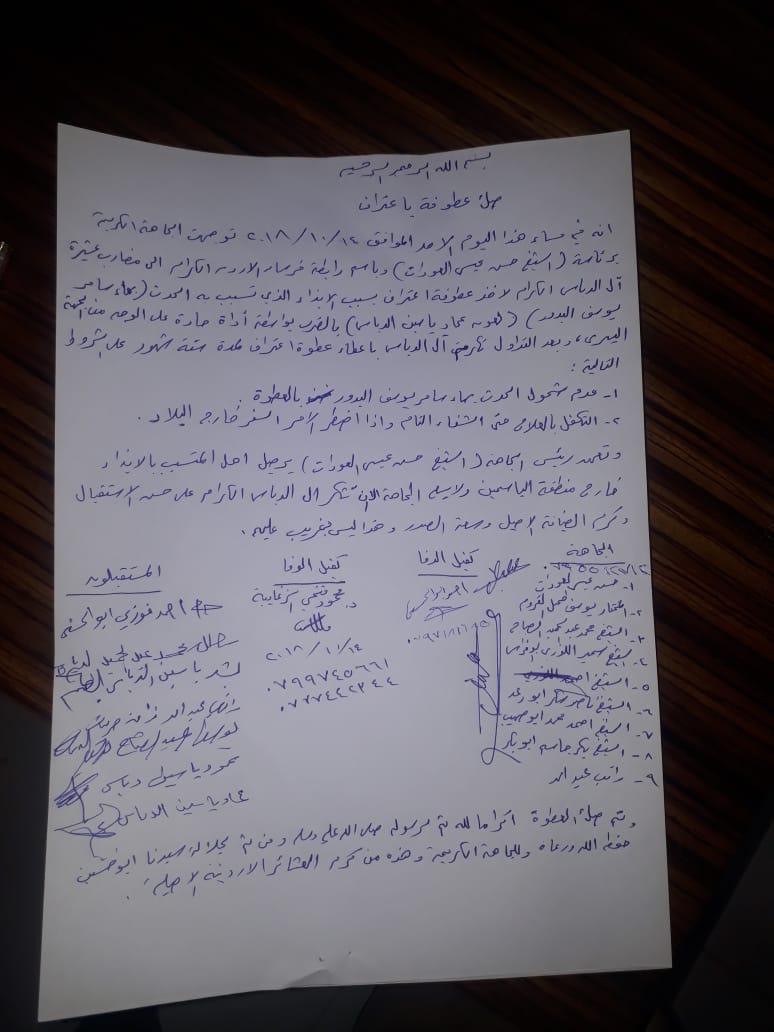 بسم الله الرحمن الرحيم
صك عطوة باعتراف
انه في مساء هذا اليوم الاحد الموافق ٢٠١٨/١٠/١٤ توجهت الجاهة الكريمة
برئاسة (الشيخ حسن عيسى العودات) وباسم رابطة فرسان الاردن الكرام الى مضارب عشيرة
آل الدباس الكرام لاخذ عطوة اعتراف بسبب الايذاء الذي تسبب به الحدث (بهاء سامر
يوسف البدور) (لعماد ياسين الدباس) بالضرب بواسطة أداة حادة على الوجه من الجهة
اليسرى، وبعد التداول تكرمت آل الدباس باعطاء عطوة اعتراف لمدة ستة شهور على الشروط
التالية:
١- عدم شمول الحدث بهاء سامر يوسف البدور بالعطوة.
٢- التكفل بالعلاج حتى الشفاء التام واذا اضطر الامر السفر خارج البلاد.
وتعهد رئيس الجاهة (الشيخ حسن عيسى العودات) برحيل اهل المتسبب بالايذاء
خارج منطقة الياسمين ولايسع الجاهة الان تشكر ال الدباس الكرام على حسن الاستقبال
وكرم الضيافة الاصيل وسعة الصدر وهذا ليس بغريب عليهم.
الجاهة
١- حسن عيسى العودات
٢- المختار يوسف
٣- الشيخ محمد عبد
٤- الشيخ سمير اللوزي ابو فراس
٥- الشيخ احمد
٦- الشيخ ناصر شاكر ابو رعد
٧- الشيخ احمد محمد ابو صهيب
٨- الشيخ بكر جاسم ابو بكر
٩- راتب عبد الله
كفيل الدفا
كفيل الوفا
د. محمود فتحي
٢٠١٨/١٠/١٤
٠٧٩٩٧٤٥٦٦١
٠٧٧٧٤٤٢٣٤٤
المستقبلون
احمد فوزي ابو
ياسين الدباس
محمود ياسين دباس
عماد ياسين الدباس
وتم صك العطوة اكراما لله ثم لرسوله صلى الله عليه وسلم ومن ثم لجلالة سيدنا ابو حسين
حفظه الله ورعاه وللجاهة الكريمة وهذه من كرم العشائر الاردنية الاصيلة.